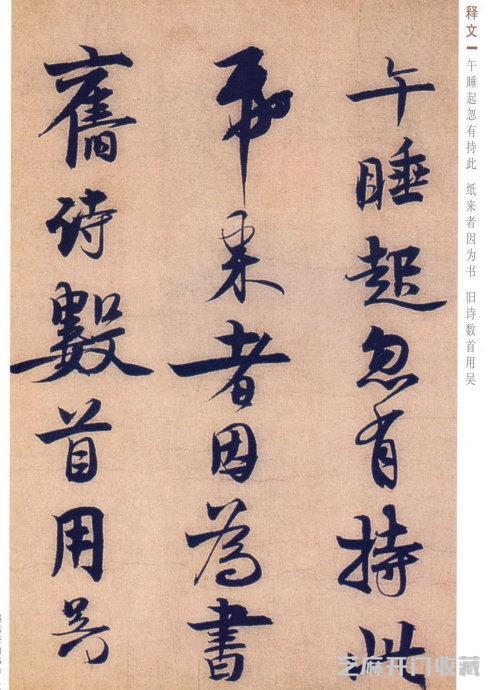 午睡起忽有持此
纸来者因为書
舊诗數首用吴
释文 午睡起忽有持此 纸来者因为书 旧诗数首用吴
芝麻开门收藏